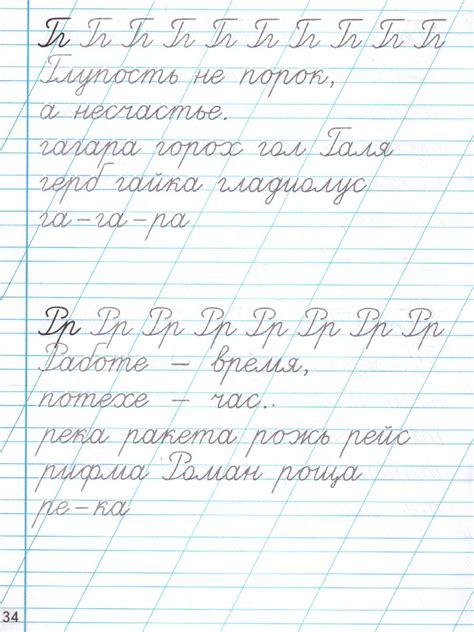 Гг Гг Гг Гг Гг Гг Гг Гг Гг Гг
Глупость не порок,
а несчастье.
гагара горох гол Галя
герб гайка гладиолус
га-га-ра
Рр Рр Рр Рр Рр Рр Рр Рр
Работе – время,
потехе – час..
река ракета рожь рейс
рифма Роман роща
ре-ка
34